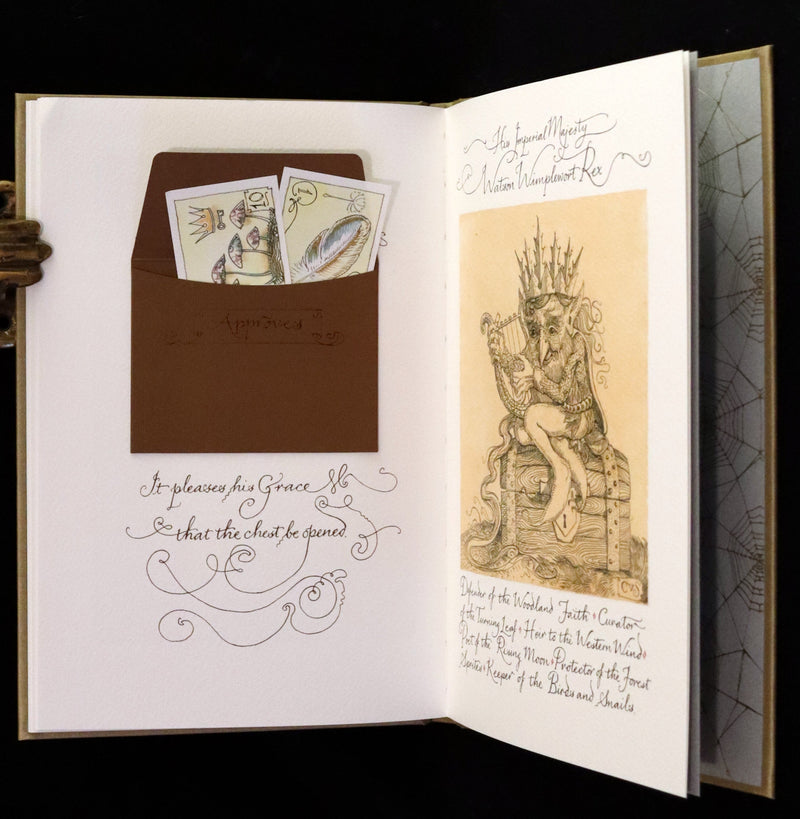 10
1
Approved
It pleases his Grace
that the chest be opened.
His Imperial Majesty
Watson Wimplewort Rex
1
Defender of the Woodland Faith • Curator
of the Turning Leaf • Heir to the Western Wind •
Poet of the Rising Moon • Protector of the Forest
Sprites • Keeper of the Birds and Snails.